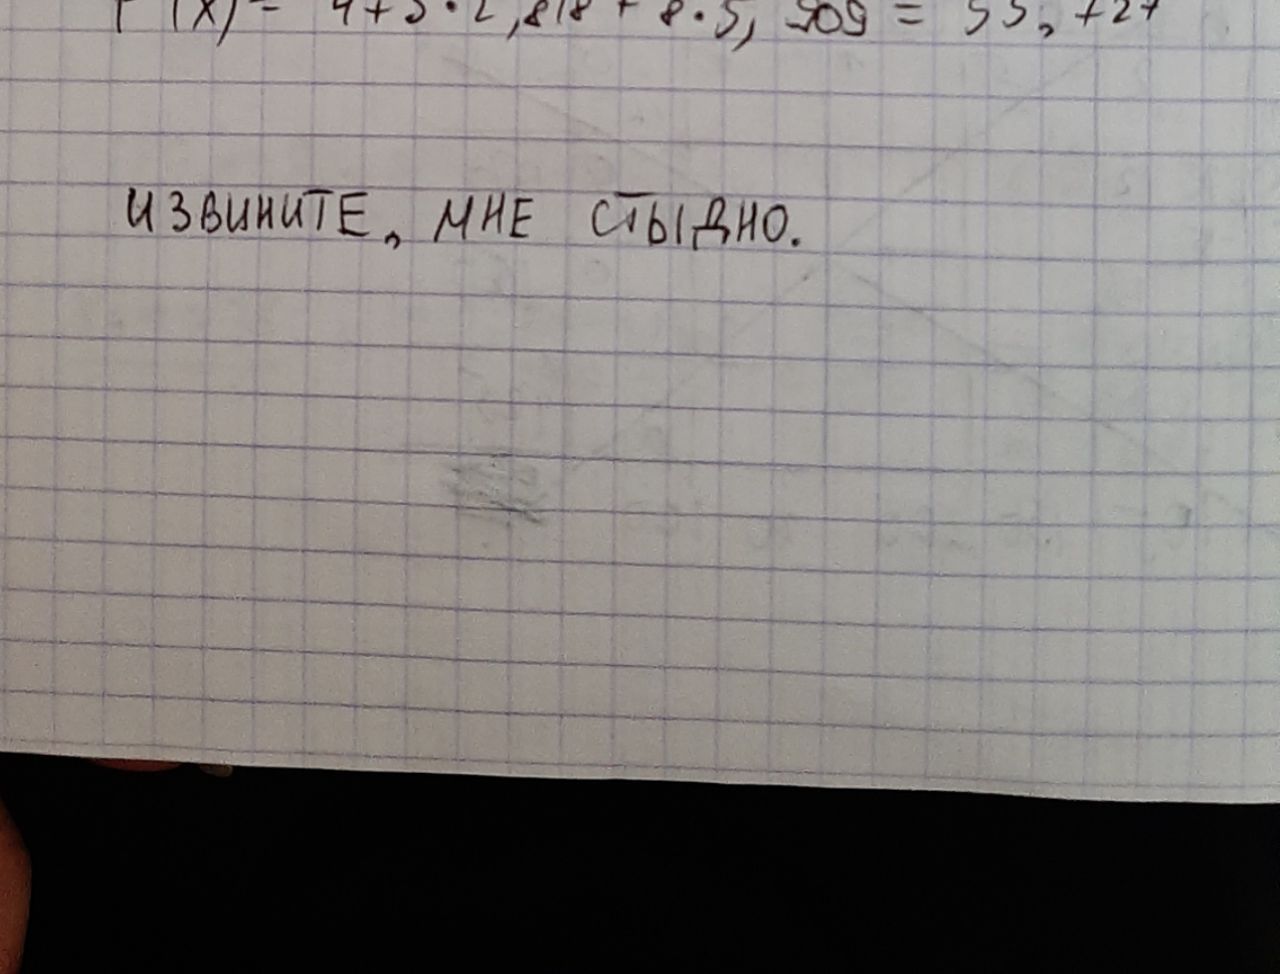 F(x) = 4+5·2,818 + 8·5,509 =
ИЗВИНИТЕ, МНЕ СТЫДНО.